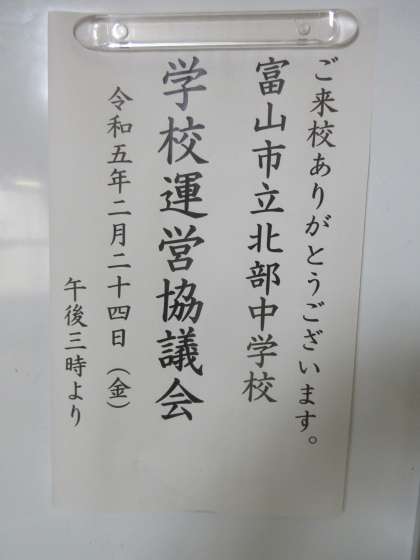 ご来校ありがとうございます。
富山市立北部中学校
学校運営協議会
令和五年二月二十四日（金）
午後三時より